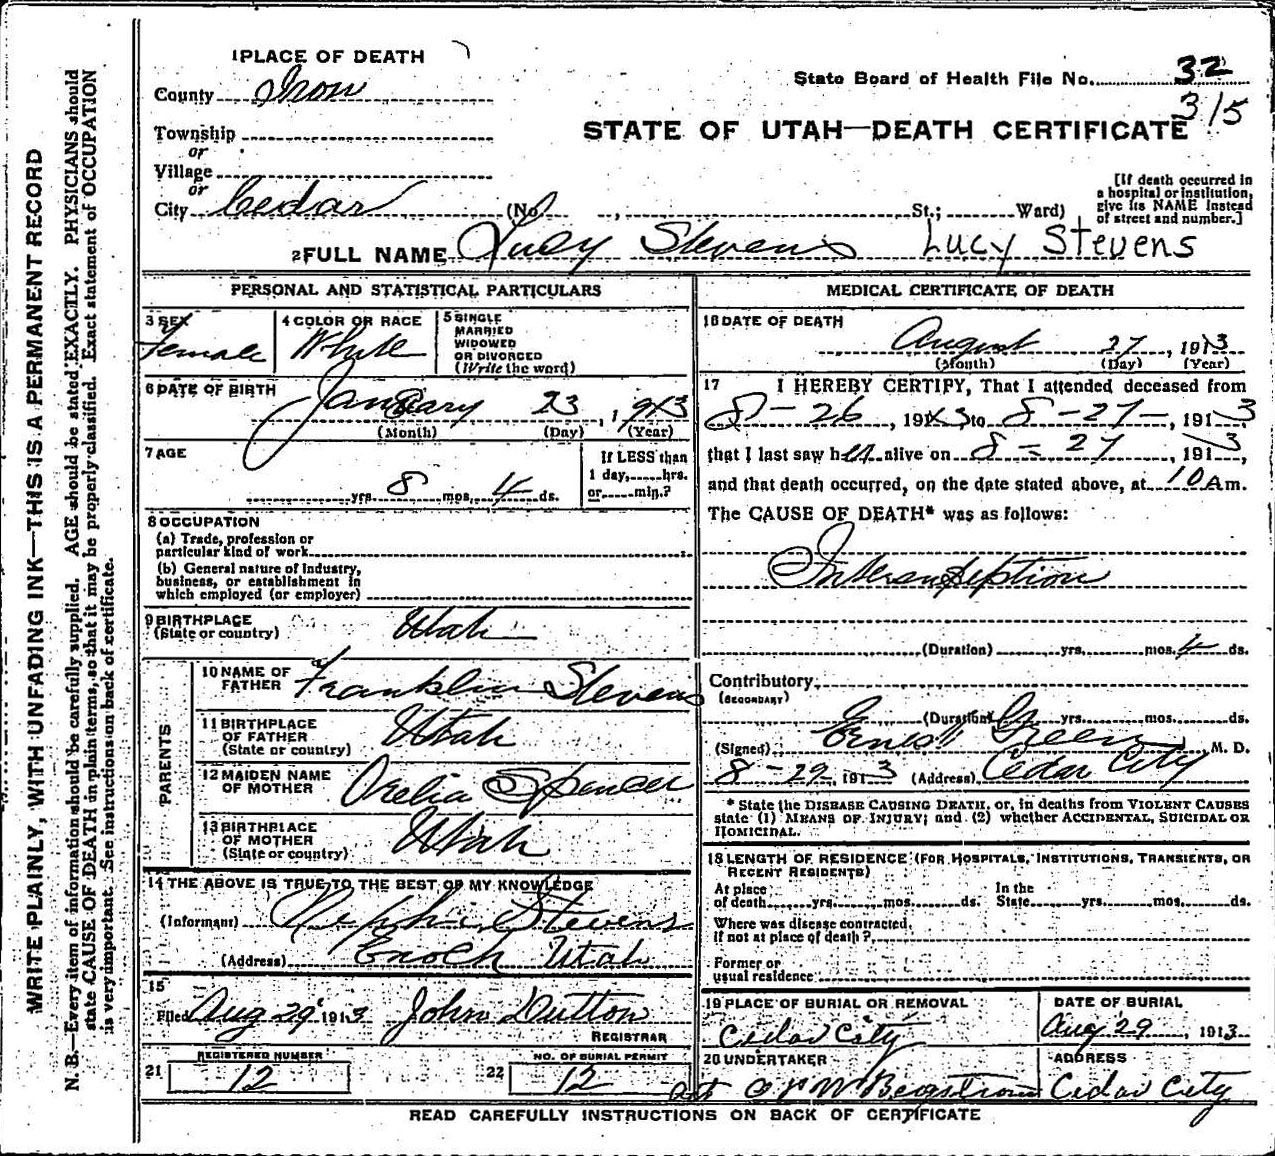 WRITE PLAINLY, WITH UNFADING INK—THIS IS A PERMANENT RECORD
N. B.—Every item of information should be carefully supplied. AGE should be stated EXACTLY. PHYSICIANS should
state CAUSE OF DEATH in plain terms, so that it may be properly classified. Exact statement of OCCUPATION
is very important. See instructions on back of certificate.
1 PLACE OF DEATH
County Iron
State Board of Health File No. 32
315
Township
or
STATE OF UTAH—DEATH CERTIFICATE
Village
or
City Cedar (No. , St.; Ward)
[If death occurred in
a hospital or institution,
give its NAME instead
of street and number.]
2 FULL NAME Lucy Stevens Lucy Stevens
PERSONAL AND STATISTICAL PARTICULARS
3 SEX
Female
4 COLOR OR RACE
White
5 SINGLE
MARRIED
WIDOWED
OR DIVORCED
(Write the word)
6 DATE OF BIRTH
January 23, 1913
(Month) (Day) (Year)
7 AGE
yrs. 8 mos. 4 ds.
If LESS than
1 day, hrs.
or min.?
8 OCCUPATION
(a) Trade, profession or
particular kind of work
(b) General nature of industry,
business, or establishment in
which employed (or employer)
9 BIRTHPLACE
(State or country) Utah
PARENTS
10 NAME OF
FATHER Franklin Stevens
11 BIRTHPLACE
OF FATHER
(State or country) Utah
12 MAIDEN NAME
OF MOTHER Orelia Spencer
13 BIRTHPLACE
OF MOTHER
(State or country) Utah
14 THE ABOVE IS TRUE TO THE BEST OF MY KNOWLEDGE
(Informant) Nephi Stevens
(Address) Enoch Utah
15
Filed Aug 29 1913 John Dutton
REGISTRAR
21 REGISTERED NUMBER
12
22 NO. OF BURIAL PERMIT
12
MEDICAL CERTIFICATE OF DEATH
16 DATE OF DEATH
August 27, 1913
(Month) (Day) (Year)
17 I HEREBY CERTIFY, That I attended deceased from
8-26, 1913 to 8-27-, 1913
that I last saw her alive on 8-27, 1913,
and that death occurred, on the date stated above, at 10 A m.
The CAUSE OF DEATH* was as follows:
(Duration) yrs. mos. 4 ds.
Contributory
(SECONDARY)
(Duration) yrs. mos. ds.
(Signed) Ernest Green M. D.
8-29, 1913 (Address) Cedar City
* State the DISEASE CAUSING DEATH, or, in deaths from VIOLENT CAUSES
state (1) MEANS OF INJURY; and (2) whether ACCIDENTAL, SUICIDAL OR
HOMICINAL.
18 LENGTH OF RESIDENCE (FOR HOSPITALS, INSTITUTIONS, TRANSIENTS, OR
RECENT RESIDENTS)
At place
of death yrs. mos. ds.
In the
State yrs. mos. ds.
Where was disease contracted,
if not at place of death?
Former or
usual residence
19 PLACE OF BURIAL OR REMOVAL
Cedar City
DATE OF BURIAL
Aug 29, 1913
20 UNDERTAKER
ADDRESS
Cedar City
READ CAREFULLY INSTRUCTIONS ON BACK OF CERTIFICATE